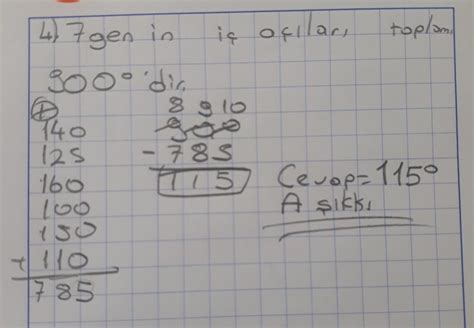 4) 7gen in iç açıları toplamı
900° 'dir.
+
140
125
160
100
150
+ 110
785
8 9 10
900
- 785
115
Cevap = 115°
A şıkkı